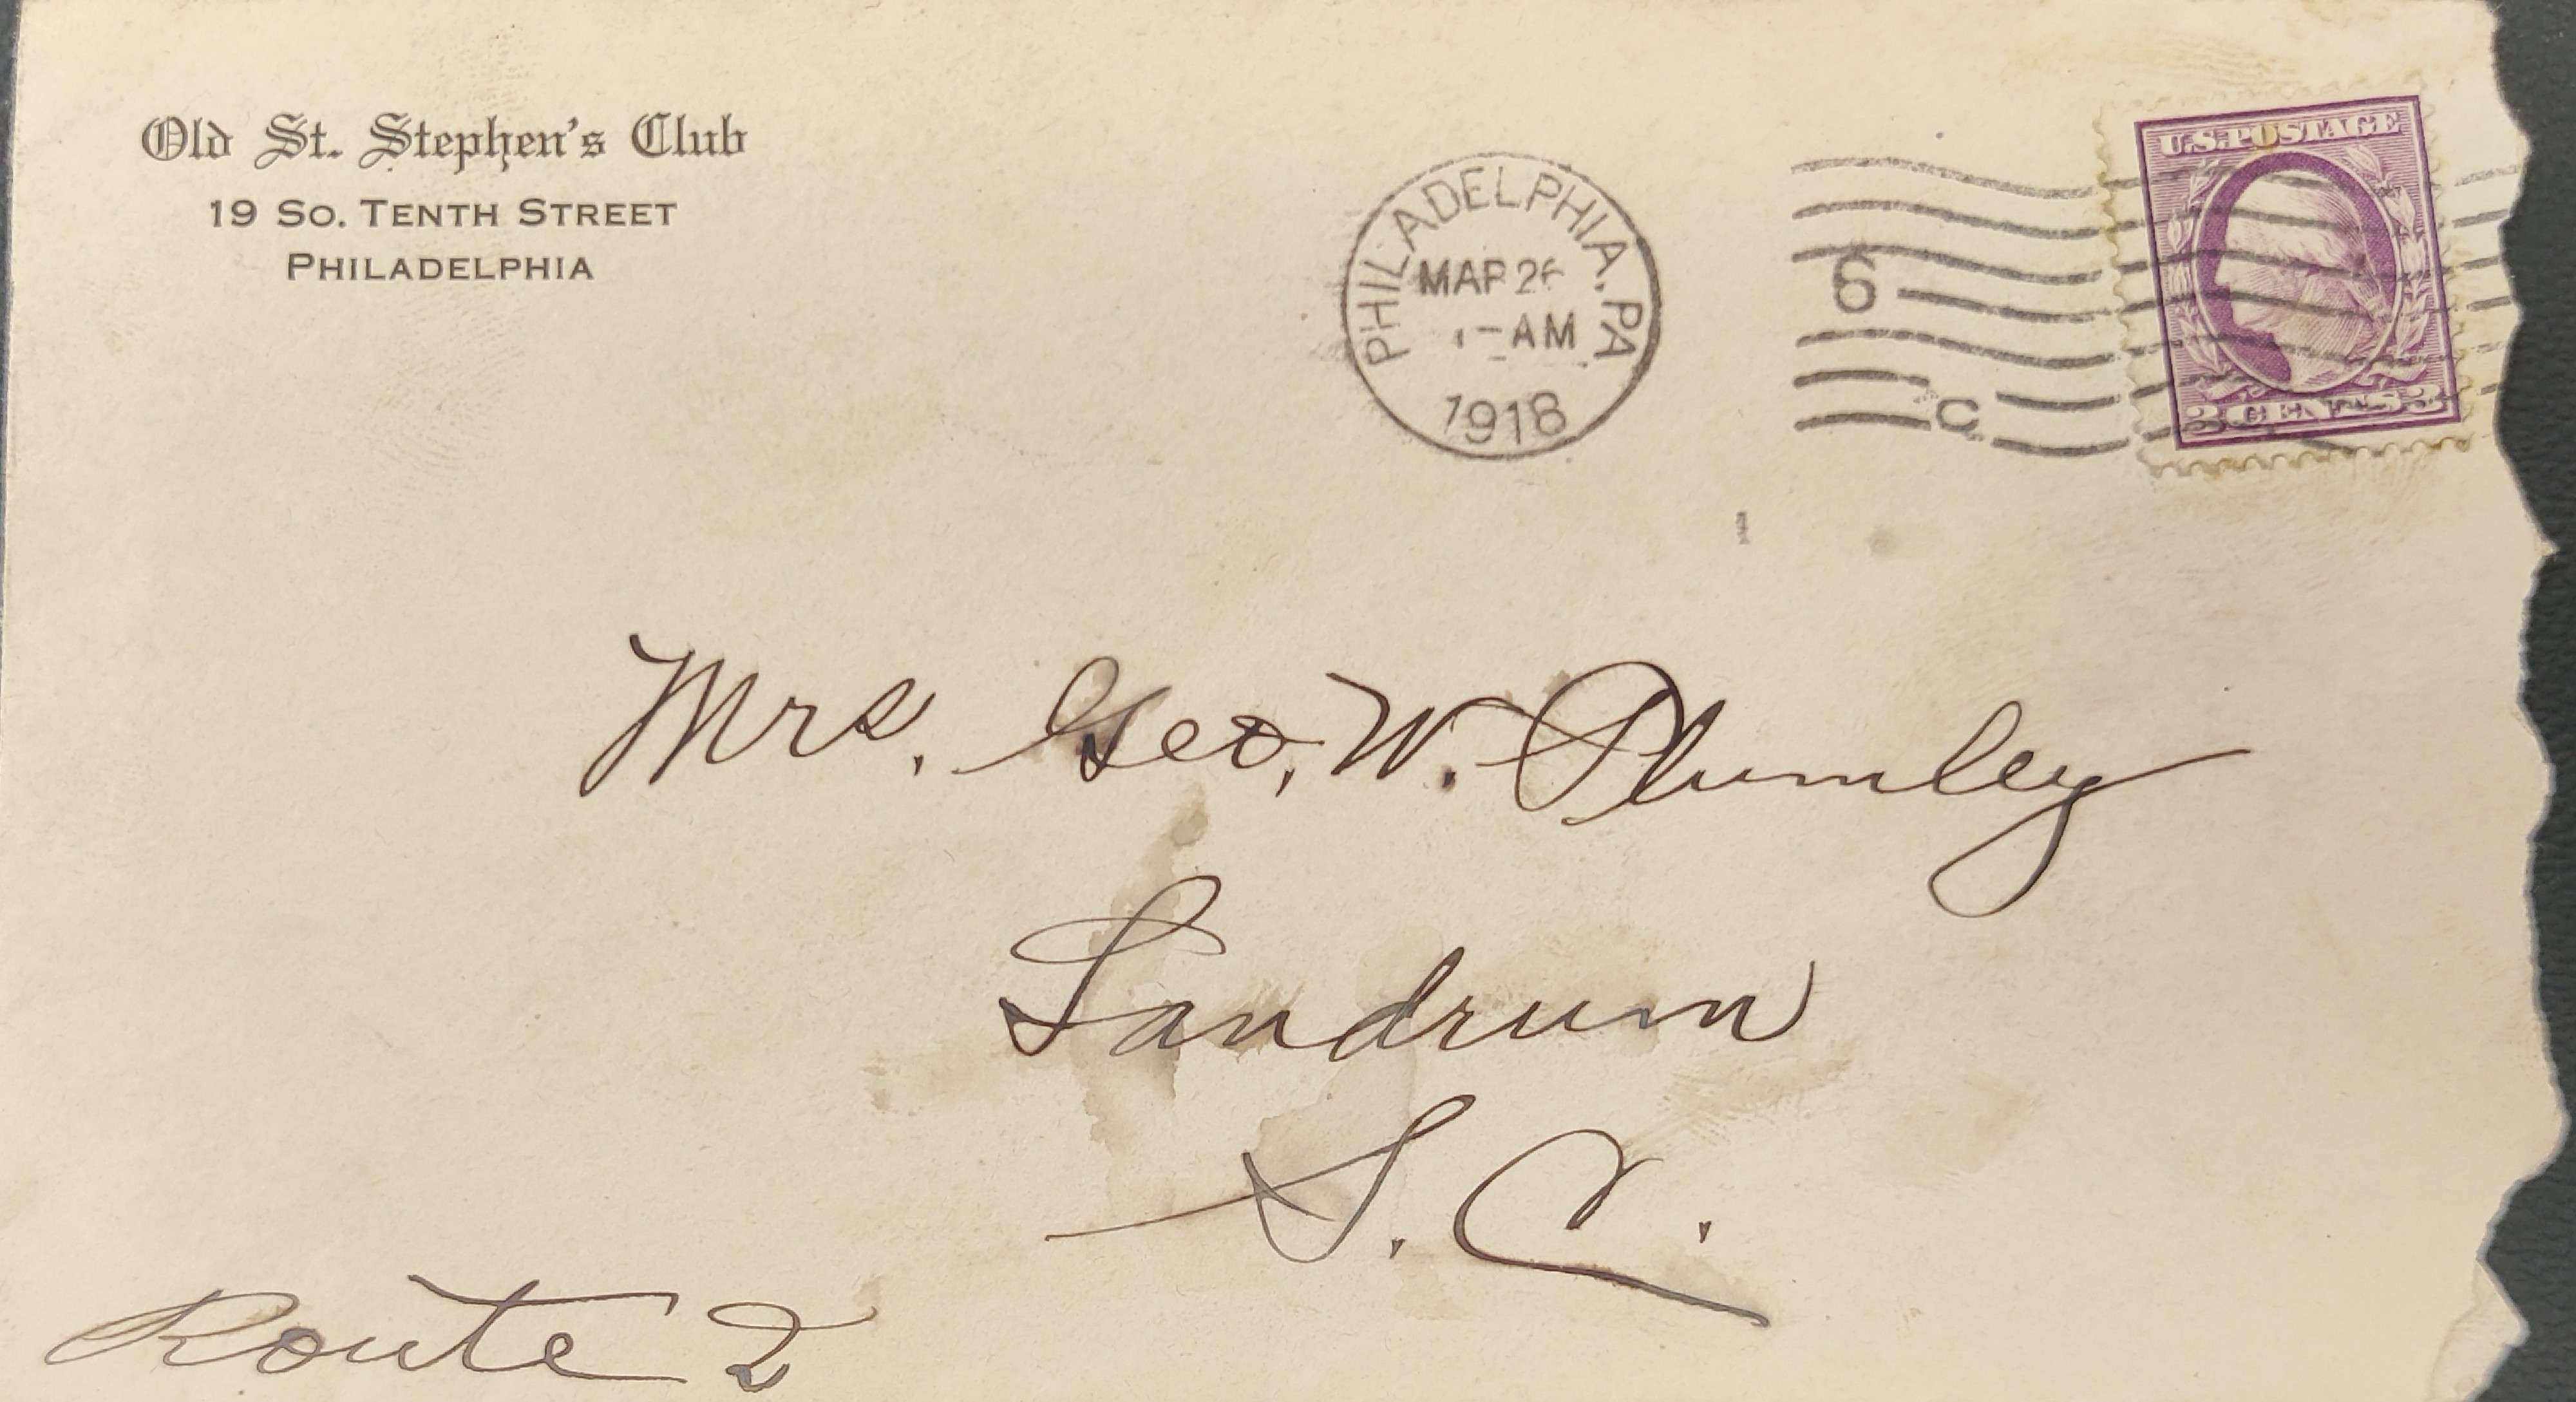 Old St. Stephen's Club
19 So. Tenth Street
Philadelphia
PHILADELPHIA, PA
MAR 26
AM
1918
6
C
U.S. POSTAGE
3 CENTS 3
Mrs. Geo. W. Plumley
Landrum
S. C.
Route 2